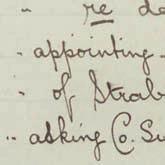 " re de
" appointing
" of Strab
" asking Co. Su